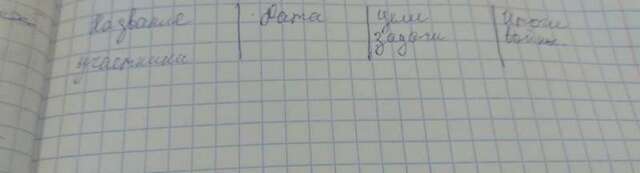 Название
участники
Дата
цели
задачи
итоги
войны